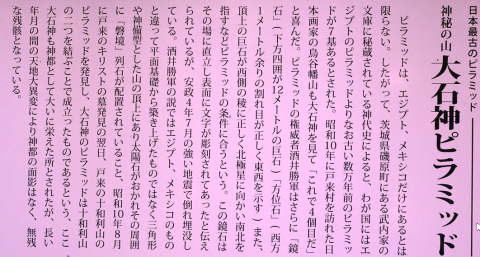 日本最古のピラミッド
神秘の山 大石神ピラミッド
ピラミッドは、エジプト、メキシコだけにあるとは
限らない。したがって、茨城県磯原町にある武内家の
文庫に秘蔵されている神代史によると、わが国にはエ
ジプトのピラミッドよりなお古い数万年前のピラミッ
ドが7基あるとされ、昭和10年に戸来村を訪れた日
本画家の鳥谷幡山も大石神を見て「これで4個目だ」
と喜んだ。ピラミッドの権威者酒井勝軍はさらに「鏡
石」(下方四囲が12メートルの巨石)「方位石」(西方
1メートル余りの割れ目が正しく東西を示す)また、
頂上の巨石が西側の稜に正しく北極星に向かい南北を
指すなどピラミッドの条件に合うという。この鏡石は
その場に直立し表面に文字が彫刻されてあったと伝え
られているが、安政4年7月の強い地震で倒れ埋没し
ている。酒井勝軍の説ではエジプト、メキシコのもの
と違って平面基礎から築き上げたものではなく三角形
や神備型とした山の頂上にあり太陽石がおかれその周囲
に「磐境」列石が配置されていること、昭和10年8月
に戸来のキリストの墓発見の翌日、戸来の十和利山の
ピラミッドを発見し、大石神のピラミッドは十和利山
の二つを結ぶことで成立つたものであるという、ここ
大石神も神都として大いに栄えた所とされたが、長い
年月の間の天地大異変により神都の面影はなく、無残
な残骸となっている。